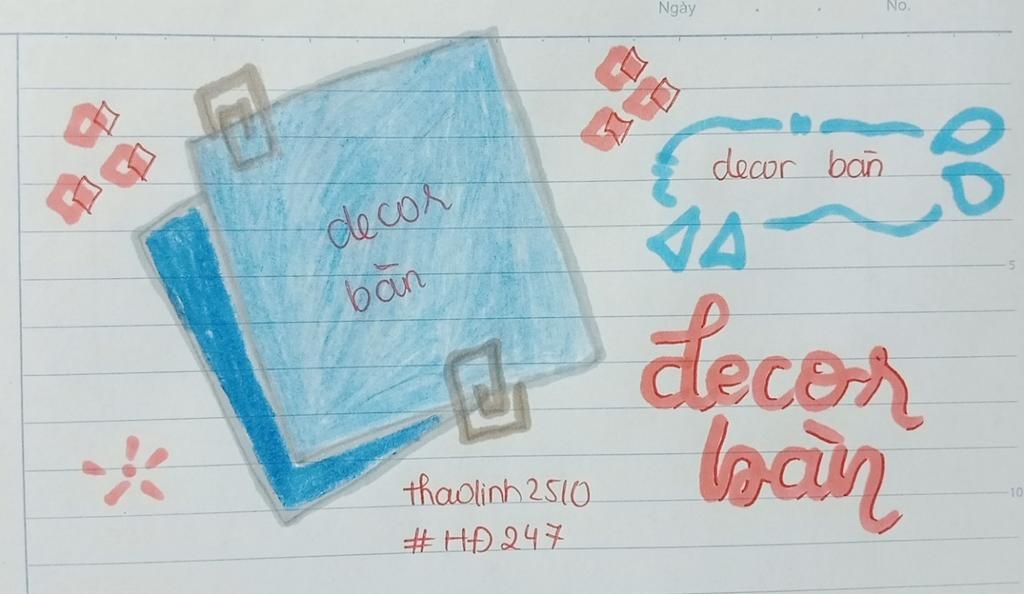 Ngày
No.
decor
bàn
decor bàn
5
decor
bàn
10
thaolinh2510
#HĐ247